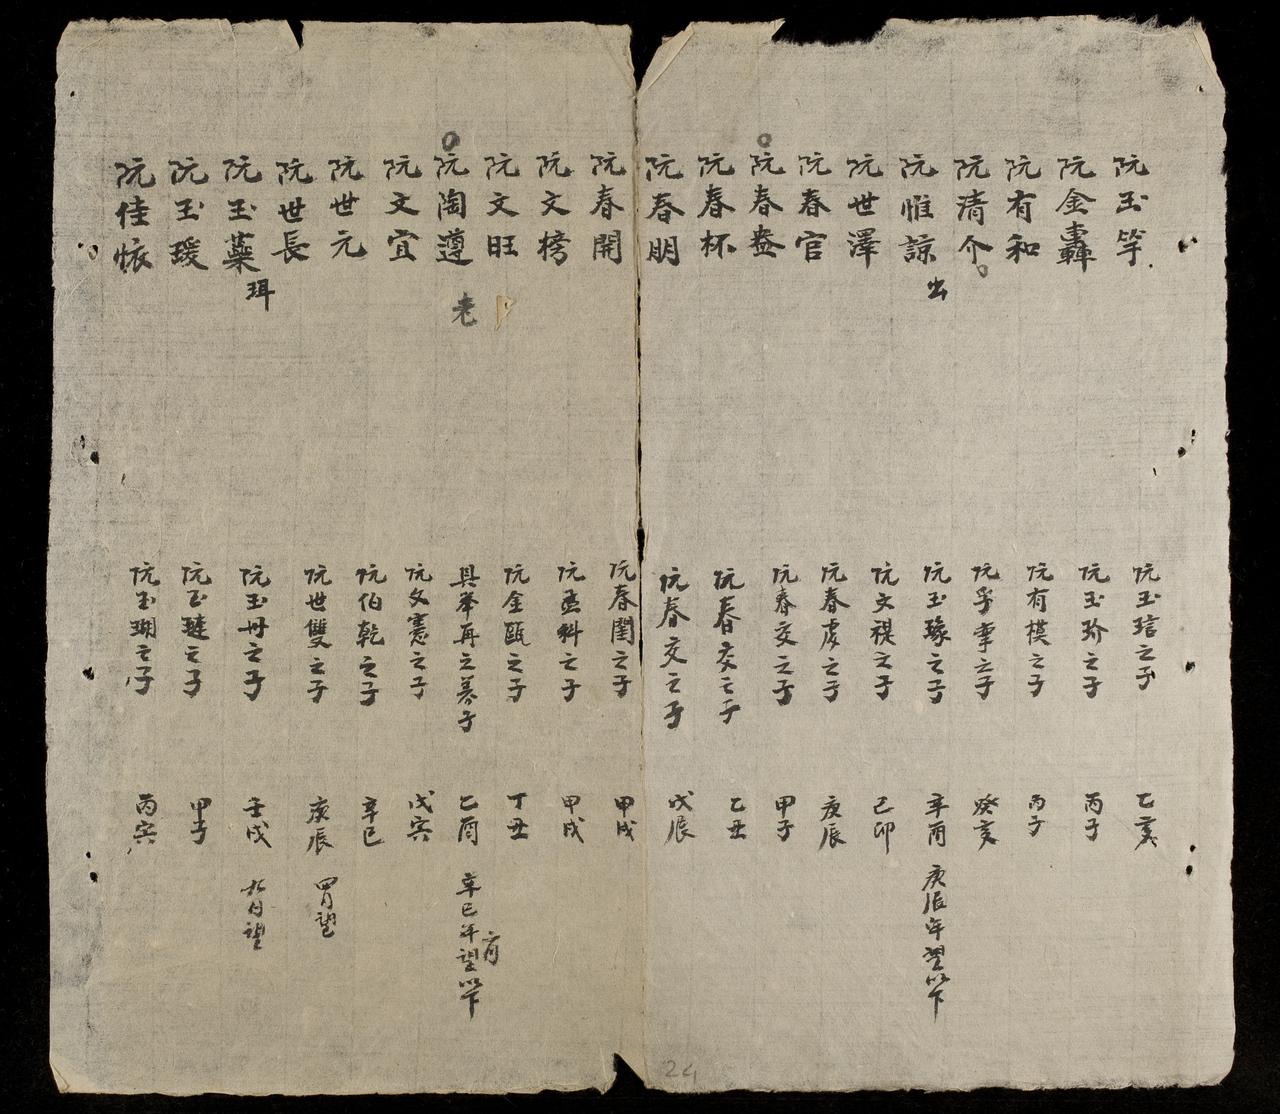 阮玉竽 阮玉琂之子 乙亥
阮金轟 阮玉玠之子 丙子
阮有和 阮有模之子 丙子
阮清介 阮孚聿之子 癸亥
阮惟諒 出 阮玉瑑之子 辛酉 庚辰年望以下
阮世澤 阮文禔之子 己卯
阮春官 阮春虔之子 庚辰
阮春 阮春交之子 甲子
阮春杯 阮春交之子 乙丑
阮春朋 阮春交之子 戊辰
阮春開 阮春閏之子 甲戌
阮文榜 阮孟科之子 甲戌
阮文旺 阮金甌之子 丁丑
阮陶遵 老 具筆再之養子 乙酉 辛巳年望以下
阮文宜 阮文憲之子 戊寅
阮世元 阮伯乾之子 辛巳
阮世長 阮世雙之子 庚辰 望
阮玉藥 珥 阮玉丹之子 壬戌 望
阮玉瑗 阮玉璉之子 甲子
阮佳 阮玉瑚之子 丙寅
24